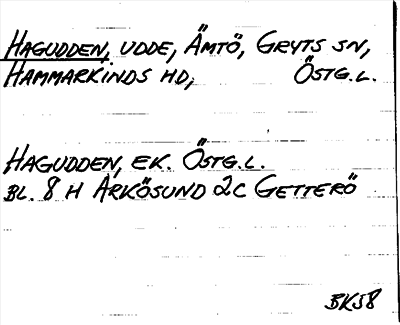 HAGUDDEN, UDDE, ÄMTÖ, GRYTS SN,
HAMMARKINDS HD, ÖSTG.L.
HAGUDDEN, EK. ÖSTG.L.
BL. 8 H ARKÖSUND 2C GETTERÖ
BK58